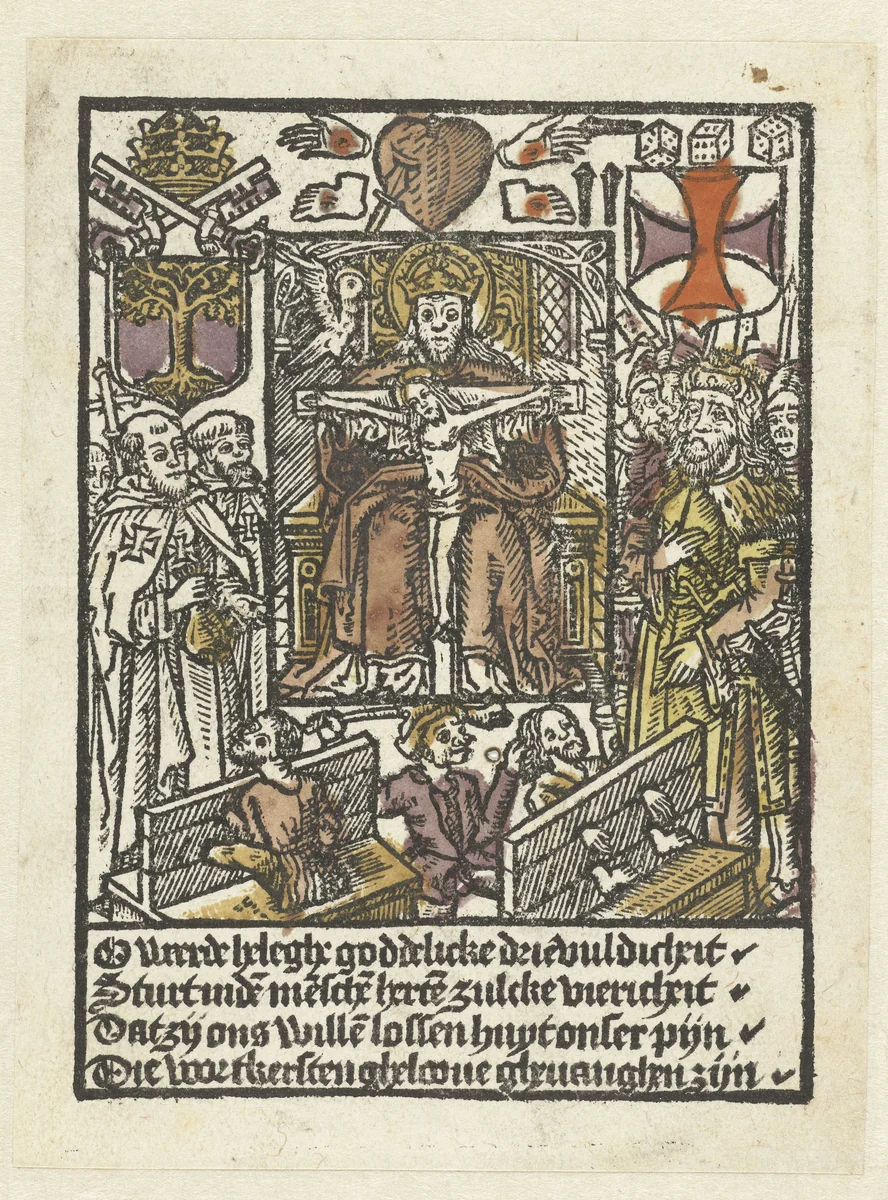 O weerde heleghe goddelicke drievuldicheit
Sturt indē mēschē hertē zulcke viericheit
Dat zij ons willē lossen huyt onser pijn
Die voer tkersten ghelooue gheuanghen zijn